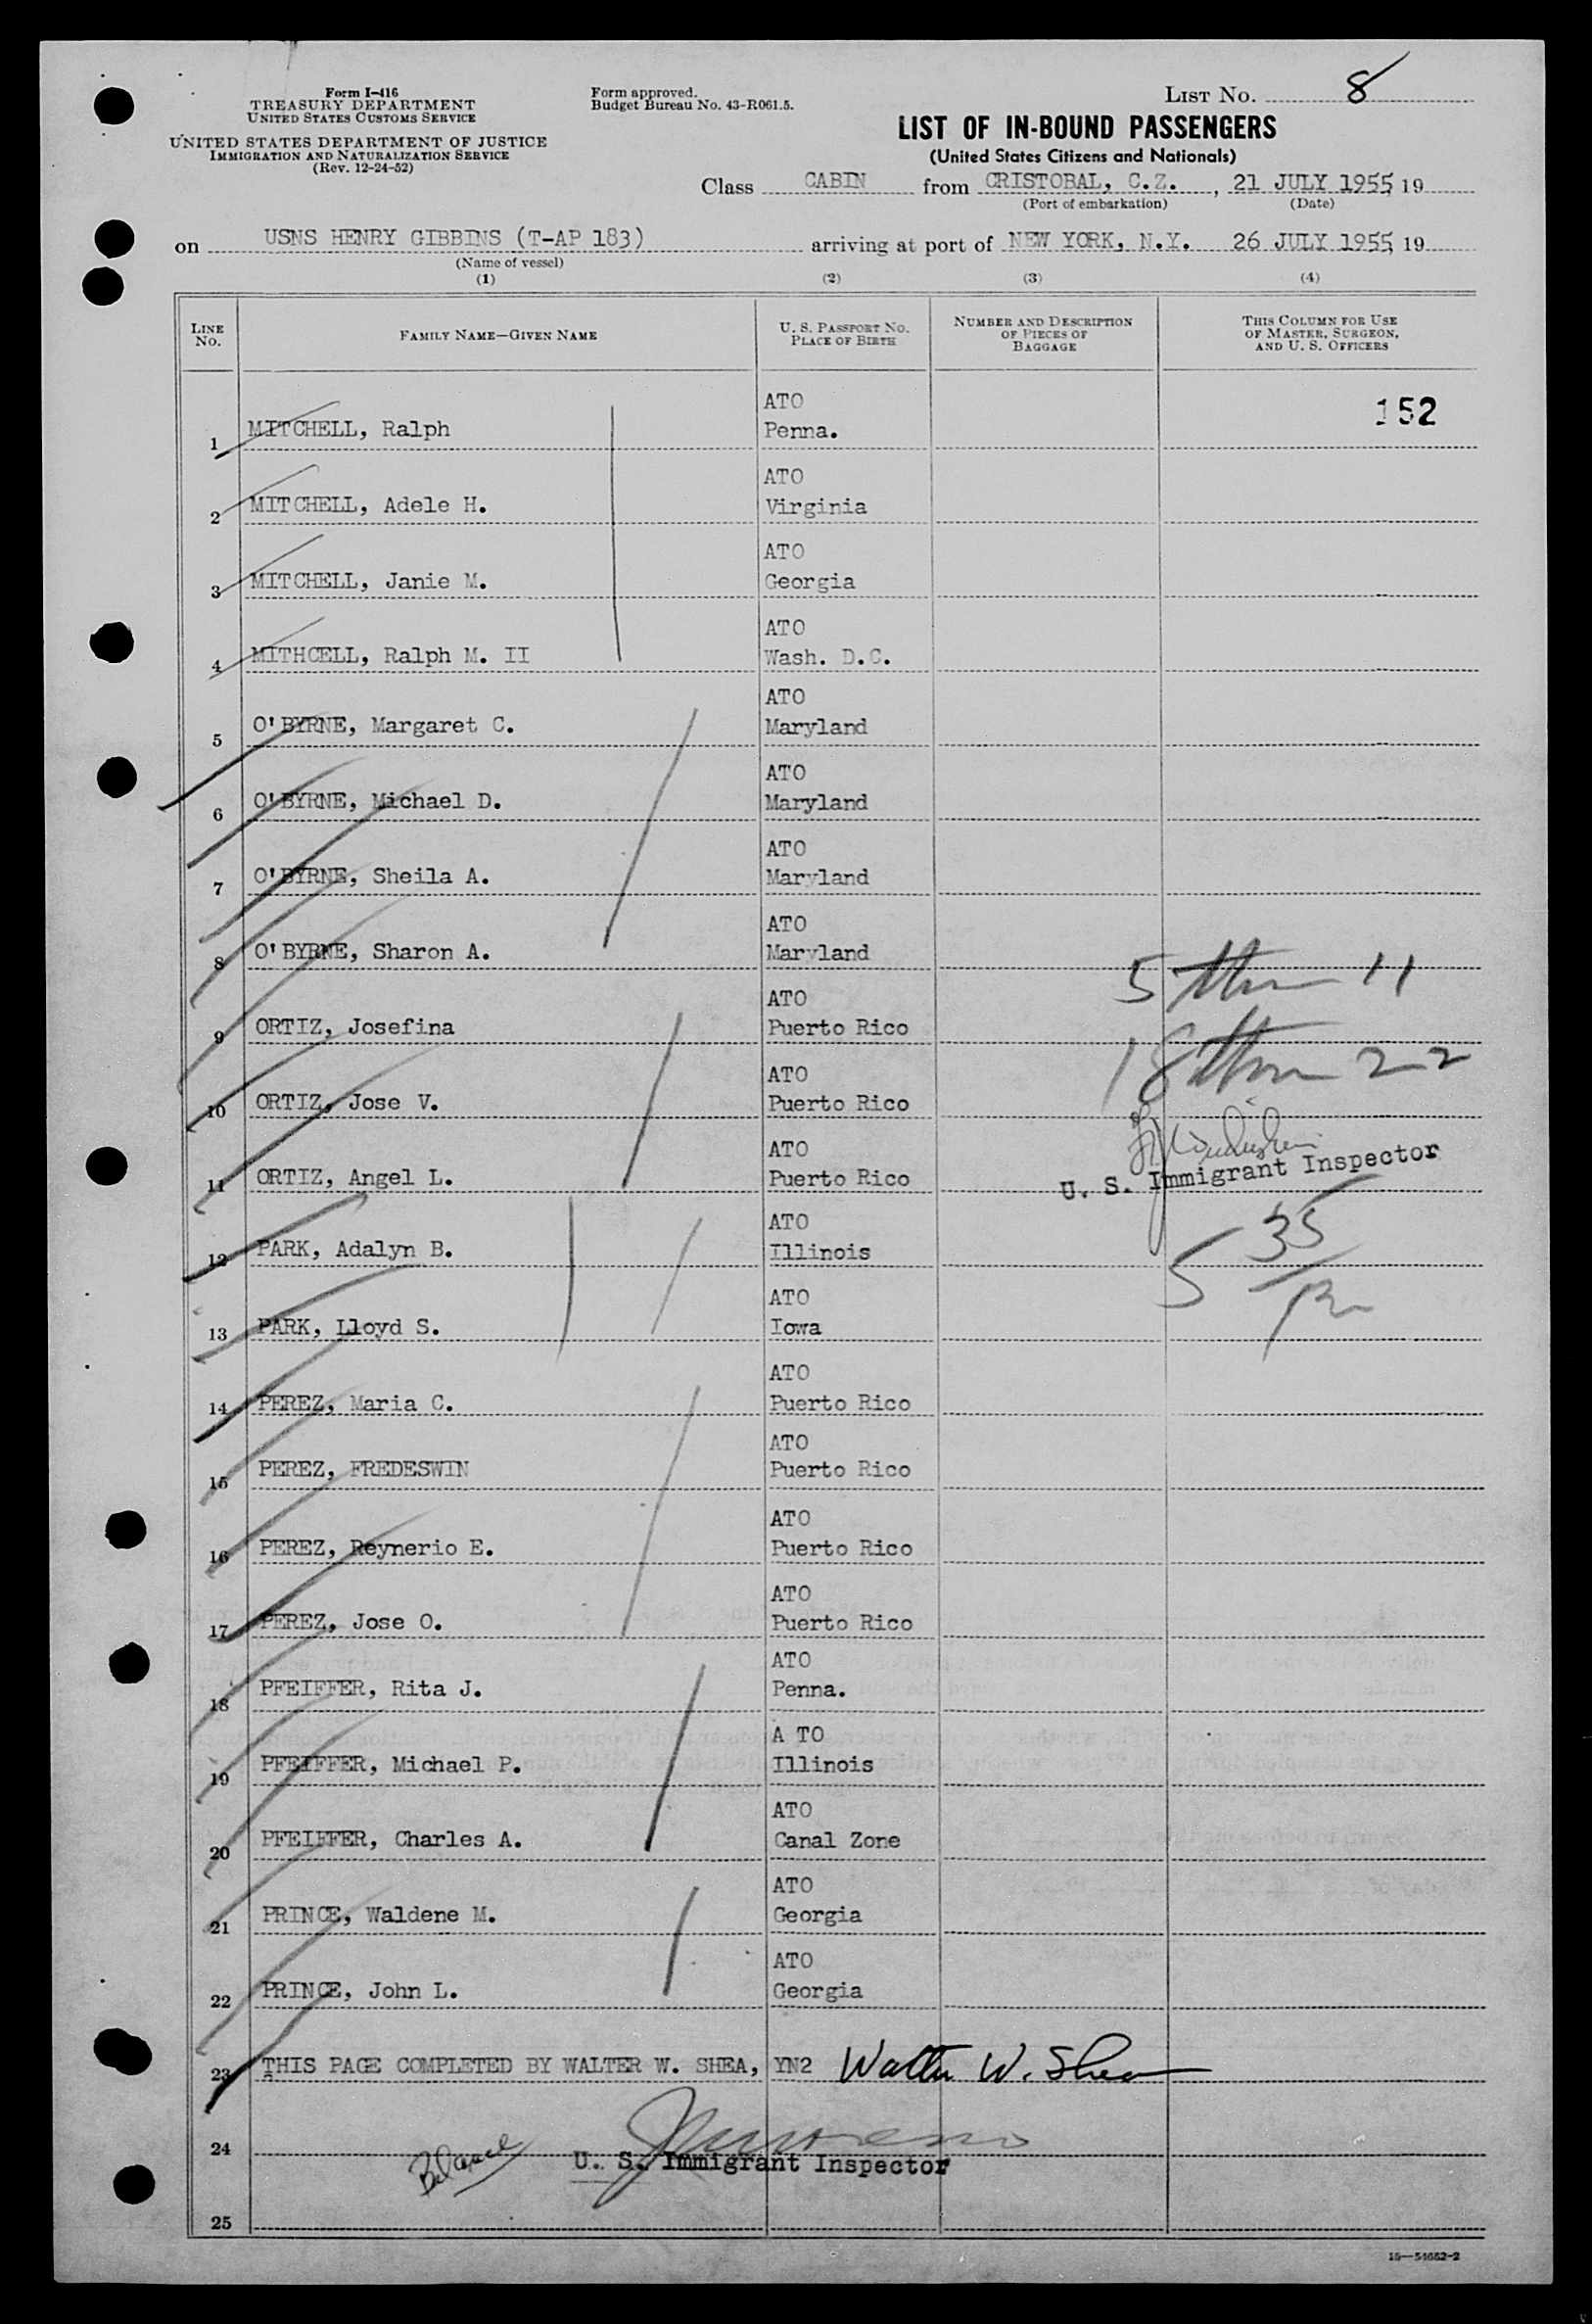 Form I-416
TREASURY DEPARTMENT
UNITED STATES CUSTOMS SERVICE
UNITED STATES DEPARTMENT OF JUSTICE
IMMIGRATION AND NATURALIZATION SERVICE
(Rev. 12-24-52)
Form approved.
Budget Bureau No. 43-R061.5.
LIST No. 8
LIST OF IN-BOUND PASSENGERS
(United States Citizens and Nationals)
Class CABIN from CRISTOBAL, C.Z. , 21 JULY 1955, 19
(Port of embarkation) (Date)
on USNS HENRY GIBBINS (T-AP 183) arriving at port of NEW YORK, N.Y. 26 JULY 1955, 19
(Name of vessel)
(1) (2) (3) (4)
LINE No. FAMILY NAME—GIVEN NAME U. S. PASSPORT No. PLACE OF BIRTH NUMBER AND DESCRIPTION OF PIECES OF BAGGAGE THIS COLUMN FOR USE OF MASTER, SURGEON, AND U. S. OFFICERS
ATO 152
1 MITCHELL, Ralph Penna.
ATO
2 MITCHELL, Adele H. Virginia
ATO
3 MITCHELL, Janie M. Georgia
ATO
4 MITHCELL, Ralph M. II Wash. D.C.
ATO
5 O'BYRNE, Margaret C. Maryland
ATO
6 O'BYRNE, Michael D. Maryland
ATO
7 O'BYRNE, Sheila A. Maryland
ATO
8 O'BYRNE, Sharon A. Maryland
5 thru 11
ATO
9 ORTIZ, Josefina Puerto Rico
18 thru 22
ATO
10 ORTIZ, Jose V. Puerto Rico
ATO
11 ORTIZ, Angel L. Puerto Rico
U. S. Immigrant Inspector
ATO
12 PARK, Adalyn B. Illinois
5 35
ATO
13 PARK, Lloyd S. Iowa
ATO
14 PEREZ, Maria C. Puerto Rico
ATO
15 PEREZ, FREDESWIN Puerto Rico
ATO
16 PEREZ, Reynerio E. Puerto Rico
ATO
17 PEREZ, Jose O. Puerto Rico
ATO
18 PFEIFFER, Rita J. Penna.
A TO
19 PFEIFFER, Michael P. Illinois
ATO
20 PFEIFFER, Charles A. Canal Zone
ATO
21 PRINCE, Waldene M. Georgia
ATO
22 PRINCE, John L. Georgia
23 THIS PAGE COMPLETED BY WALTER W. SHEA, YN2 Walter W. Shea
24
Balance U. S. Immigrant Inspector
25
16—54652-2